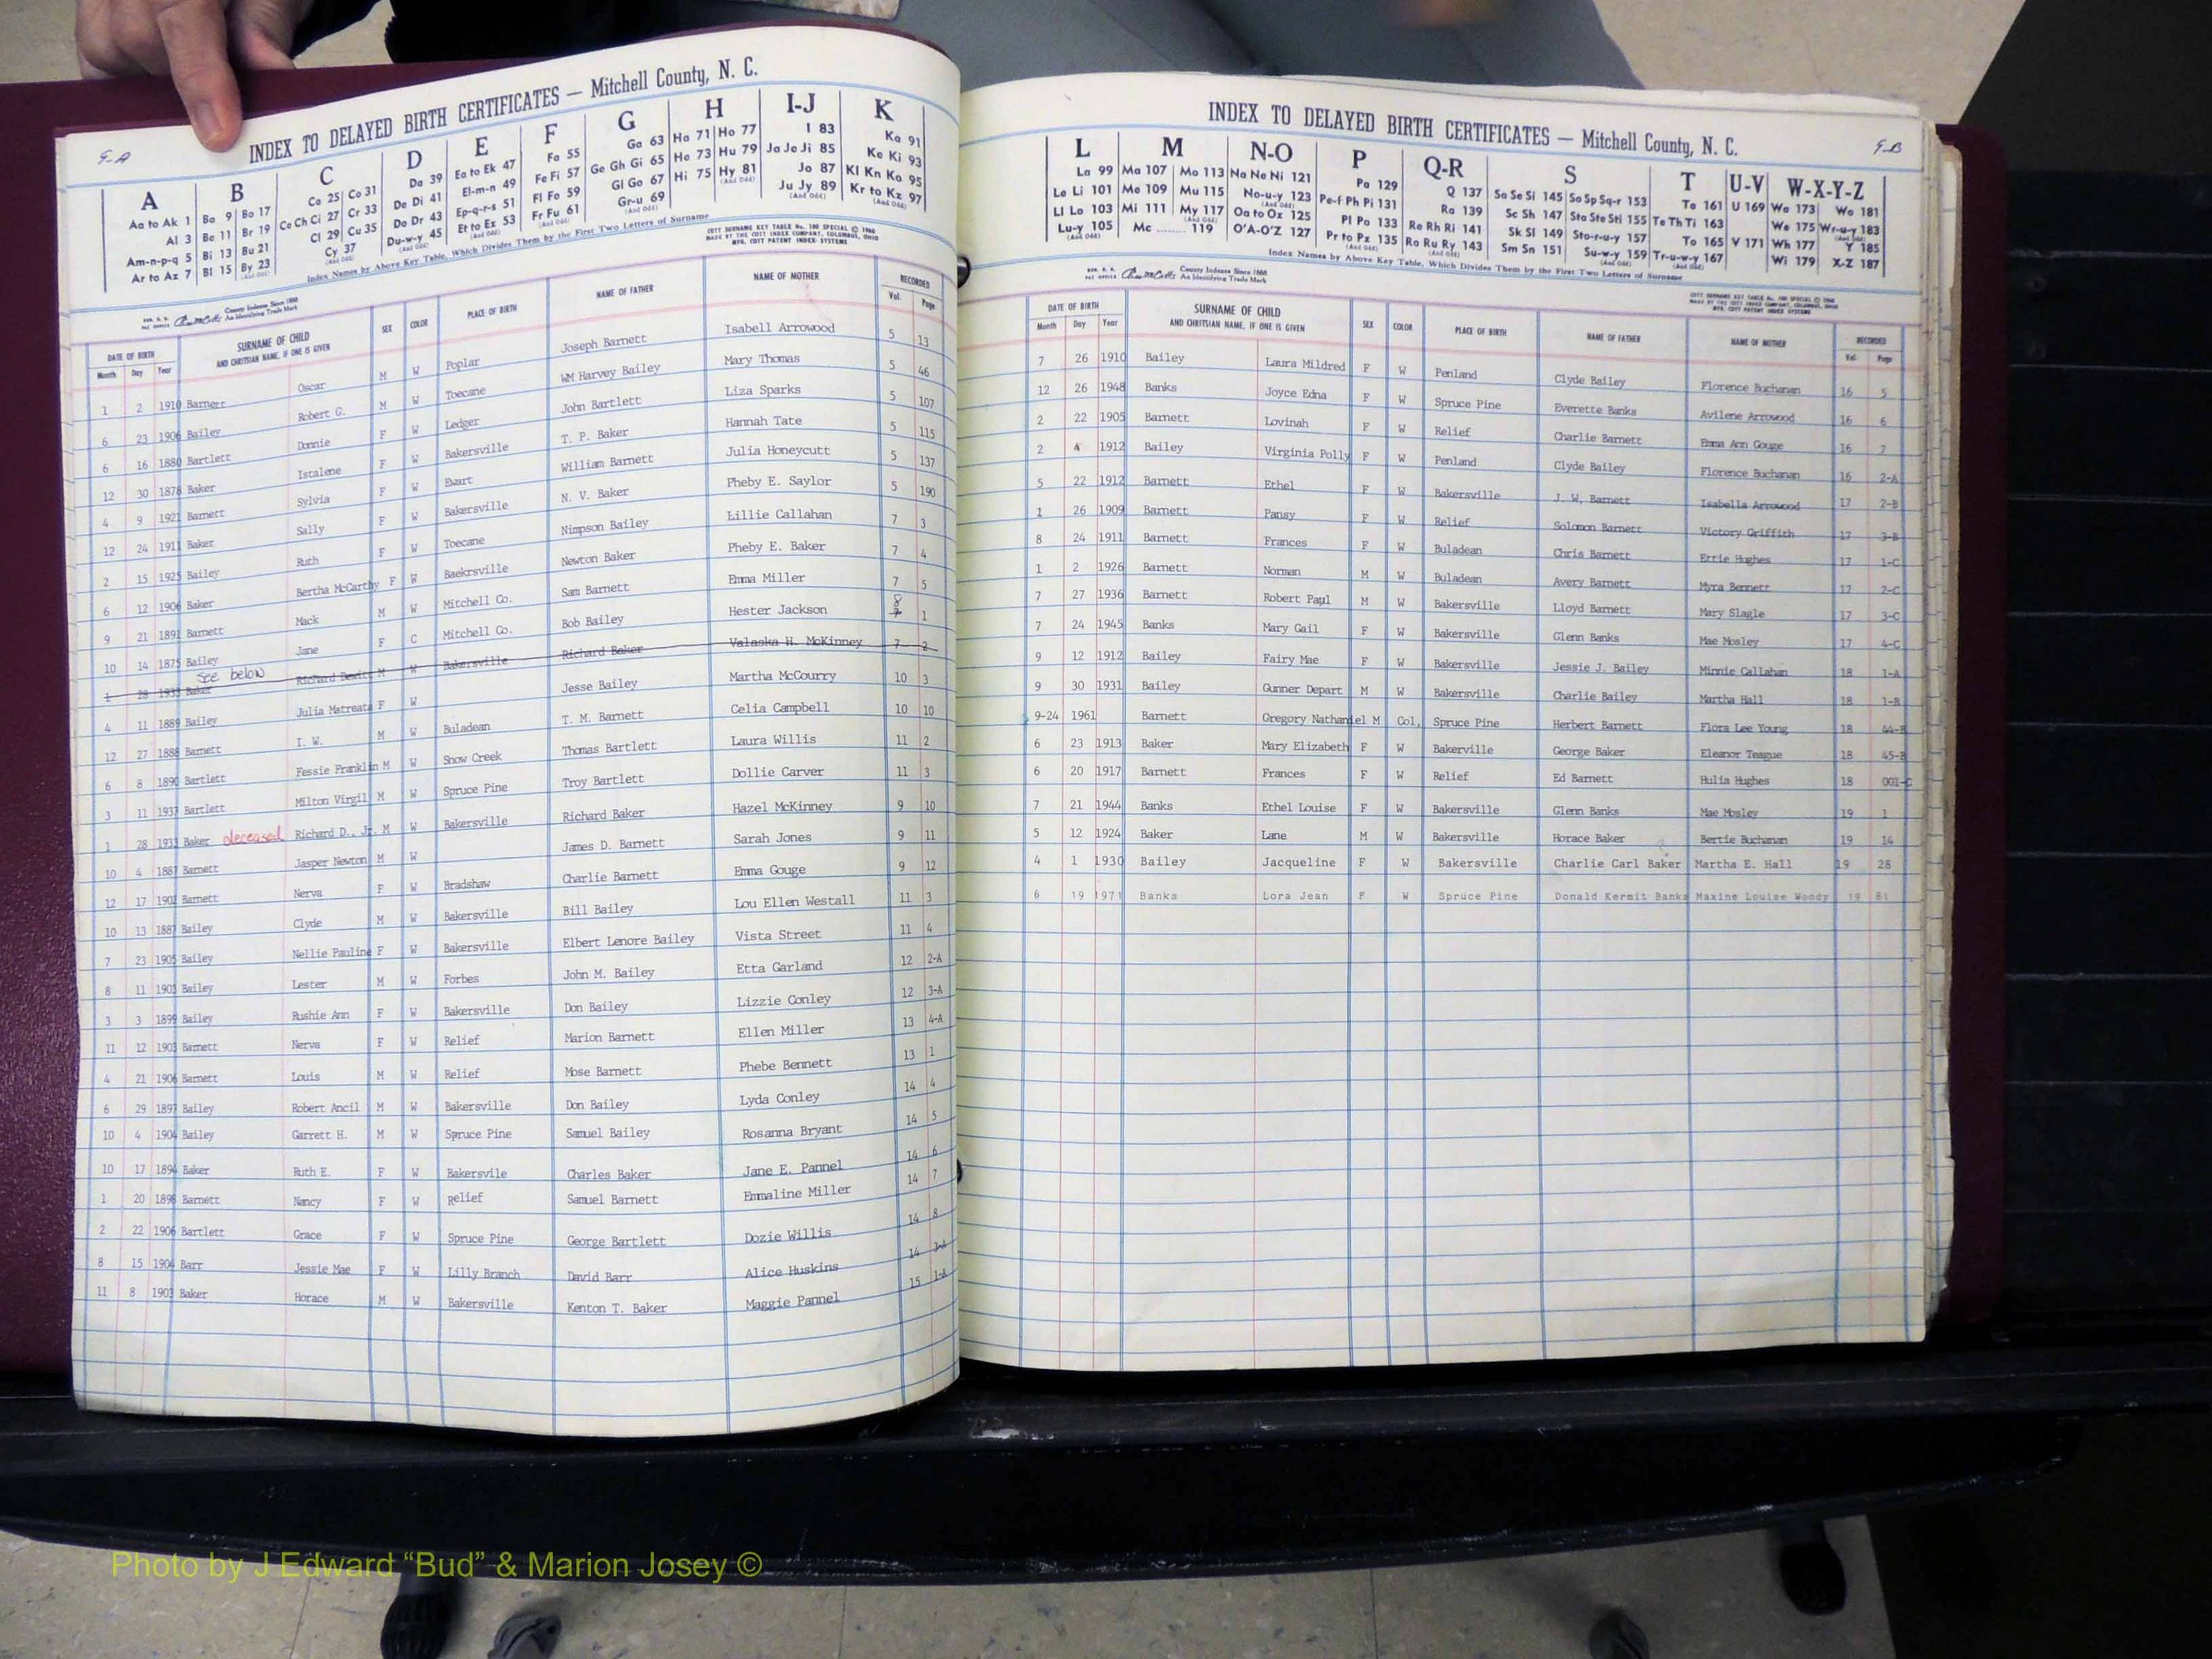 INDEX TO DELAYED BIRTH CERTIFICATES — Mitchell County, N. C.
9-A
A B C D E F G H I-J K
Aa to Ak 1 Ba 9 Bo 17 Ca 25 Co 31 Da 39 Ea to Ek 47 Fa 55 Ga 63 Ha 71 Ho 77 I 83 Ka 91
Al 3 Be 11 Br 19 Ce Ch Ci 27 Cr 33 De Di 41 El-m-n 49 Fe Fi 57 Ge Gh Gi 65 He 73 Hu 79 Ja Je Ji 85 Ke Ki 93
Am-n-p-q 5 Bi 13 Bu 21 Cl 29 Cu 35 Do Dr 43 Ep-q-r-s 51 Fl Fo 59 Gl Go 67 Hi 75 Hy 81 Jo 87 Kl Kn Ko 95
Ar to Az 7 Bl 15 By 23 Cy 37 Du-w-y 45 Et to Ez 53 Fr Fu 61 Gr-u 69 Ju Jy 89 Kr to Kz 97
Index Names by Above Key Table, Which Divides Them by the First Two Letters of Surname
COTT SURNAME KEY TABLE No. 100 SPECIAL © 1966
MADE BY THE COTT INDEX COMPANY, COLUMBUS, OHIO
MFG. COTT PATENT INDEX SYSTEMS
County Indexes Since 1888
An Identifying Trade Mark
DATE OF BIRTH SURNAME OF CHILD SEX COLOR PLACE OF BIRTH NAME OF FATHER NAME OF MOTHER RECORDED
Month Day Year AND CHRITSIAN NAME, IF ONE IS GIVEN Vol. Page
1 2 1910 Barnett Oscar M W Poplar Joseph Barnett Isabell Arrowood 5 13
6 23 1906 Bailey Robert G. M W Toecane WM Harvey Bailey Mary Thomas 5 46
6 16 1880 Bartlett Donnie F W Ledger John Bartlett Liza Sparks 5 107
12 30 1878 Baker Istalene F W Bakersville T. P. Baker Hannah Tate 5 115
4 9 1921 Barnett Sylvia F W Ewart William Barnett Julia Honeycutt 5 137
12 24 1911 Baker Sally F W Bakersville N. V. Baker Pheby E. Saylor 5 190
2 15 1925 Bailey Ruth F W Toecane Nimpson Bailey Lillie Callahan 7 3
6 12 1906 Baker Bertha McCarthy F W Baekrsville Newton Baker Pheby E. Baker 7 4
9 21 1891 Barnett Mack M W Mitchell Co. Sam Barnett Emma Miller 7 5
10 14 1875 Bailey Jane F C Mitchell Co. Bob Bailey Hester Jackson 8 1
See below
1 28 1933 Baker Richard Dewitt M W Bakersville Richard Baker Valaska H. McKinney 7 2
4 11 1889 Bailey Julia Matreata F W Jesse Bailey Martha McCourry 10 3
12 27 1888 Barnett I. W. M W Buladean T. M. Barnett Celia Campbell 10 10
6 8 1890 Bartlett Fessie Franklin M W Snow Creek Thomas Bartlett Laura Willis 11 2
3 11 1937 Bartlett Milton Virgil M W Spruce Pine Troy Bartlett Dollie Carver 11 3
1 28 1933 Baker deceased Richard D., Jr. M W Bakersville Richard Baker Hazel McKinney 9 10
10 4 1887 Barnett Jasper Newton M W James D. Barnett Sarah Jones 9 11
12 17 1902 Barnett Nerva F W Bradshaw Charlie Barnett Emma Gouge 9 12
10 13 1887 Bailey Clyde M W Bakersville Bill Bailey Lou Ellen Westall 11 3
7 23 1905 Bailey Nellie Pauline F W Bakersville Elbert Lenore Bailey Vista Street 11 4
8 11 1903 Bailey Lester M W Forbes John M. Bailey Etta Garland 12 2-A
3 3 1899 Bailey Rushie Ann F W Bakersville Don Bailey Lizzie Conley 12 3-A
11 12 1903 Barnett Nerva F W Relief Marion Barnett Ellen Miller 13 4-A
4 21 1906 Barnett Louis M W Relief Mose Barnett Phebe Bennett 13 1
6 29 1897 Bailey Robert Ancil M W Bakersville Don Bailey Lyda Conley 14 4
10 4 1904 Bailey Garrett H. M W Spruce Pine Samuel Bailey Rosanna Bryant 14 5
10 17 1894 Baker Ruth E. F W Bakersvile Charles Baker Jane E. Pannel 14 6
1 20 1898 Barnett Nancy F W Relief Samuel Barnett Emmaline Miller 14 7
2 22 1906 Bartlett Grace F W Spruce Pine George Bartlett Dozie Willis 14 8
8 15 1904 Barr Jessie Mae F W Lilly Branch David Barr Alice Huskins 14 3-A
11 8 1903 Baker Horace M W Bakersville Kenton T. Baker Maggie Pannel 15 1-A
INDEX TO DELAYED BIRTH CERTIFICATES — Mitchell County, N. C.
9-B
L M N-O P Q-R S T U-V W-X-Y-Z
La 99 Ma 107 Mo 113 Na Ne Ni 121 Pa 129 Q 137 Sa Se Si 145 So Sp Sq-r 153 Ta 161 U 169 Wa 173 Wo 181
Le Li 101 Me 109 Mu 115 No-u-y 123 Pe-f Ph Pi 131 Ra 139 Sc Sh 147 Sta Ste Sti 155 Te Th Ti 163 We 175 Wr-u-y 183
Ll Lo 103 Mi 111 My 117 Oa to Oz 125 Pl Po 133 Re Rh Ri 141 Sk Sl 149 Sto-r-u-y 157 To 165 V 171 Wh 177 Y 185
Lu-y 105 Mc ........ 119 O'A-O'Z 127 Pr to Pz 135 Ro Ru Ry 143 Sm Sn 151 Su-w-y 159 Tr-u-w-y 167 Wi 179 X-Z 187
Index Names by Above Key Table, Which Divides Them by the First Two Letters of Surname
County Indexes Since 1888
An Identifying Trade Mark
COTT SURNAME KEY TABLE No. 100 SPECIAL © 1966
MADE BY THE COTT INDEX COMPANY, COLUMBUS, OHIO
MFG. COTT PATENT INDEX SYSTEMS
DATE OF BIRTH SURNAME OF CHILD SEX COLOR PLACE OF BIRTH NAME OF FATHER NAME OF MOTHER RECORDED
Month Day Year AND CHRITSIAN NAME, IF ONE IS GIVEN Vol. Page
7 26 1910 Bailey Laura Mildred F W Penland Clyde Bailey Florence Buchanan 16 5
12 26 1948 Banks Joyce Edna F W Spruce Pine Everette Banks Avilene Arrowood 16 6
2 22 1905 Barnett Lovinah F W Relief Charlie Barnett Emma Ann Gouge 16 7
2 4 1912 Bailey Virginia Polly F W Penland Clyde Bailey Florence Buchanan 16 2-A
5 22 1912 Barnett Ethel F W Bakersville J. W. Barnett Isabella Arrowood 17 2-B
1 26 1909 Barnett Pansy F W Relief Solomon Barnett Victory Griffith 17 3-B
8 24 1911 Barnett Frances F W Buladean Chris Barnett Ettie Hughes 17 1-C
1 2 1926 Barnett Norman M W Buladean Avery Barnett Myra Bennett 17 2-C
7 27 1936 Barnett Robert Paul M W Bakersville Lloyd Barnett Mary Slagle 17 3-C
7 24 1945 Banks Mary Gail F W Bakersville Glenn Banks Mae Mosley 17 4-C
9 12 1912 Bailey Fairy Mae F W Bakersville Jessie J. Bailey Minnie Callahan 18 1-A
9 30 1931 Bailey Gunner Depart M W Bakersville Charlie Bailey Martha Hall 18 1-B
9-24 1961 Barnett Gregory Nathaniel M Col. Spruce Pine Herbert Barnett Flora Lee Young 18 44-B
6 23 1913 Baker Mary Elizabeth F W Bakerville George Baker Eleanor Teague 18 45-B
6 20 1917 Barnett Frances F W Relief Ed Barnett Hulia Hughes 18 001-C
7 21 1944 Banks Ethel Louise F W Bakersville Glenn Banks Mae Mosley 19 1
5 12 1924 Baker Lane M W Bakersville Horace Baker Bertie Buchanan 19 14
4 1 1930 Bailey Jacqueline F W Bakersville Charlie Carl Baker Martha E. Hall 19 28
6 19 1971 Banks Lora Jean F W Spruce Pine Donald Kermit Banks Maxine Louise Woody 19 81
Photo by J Edward “Bud” & Marion Josey ©